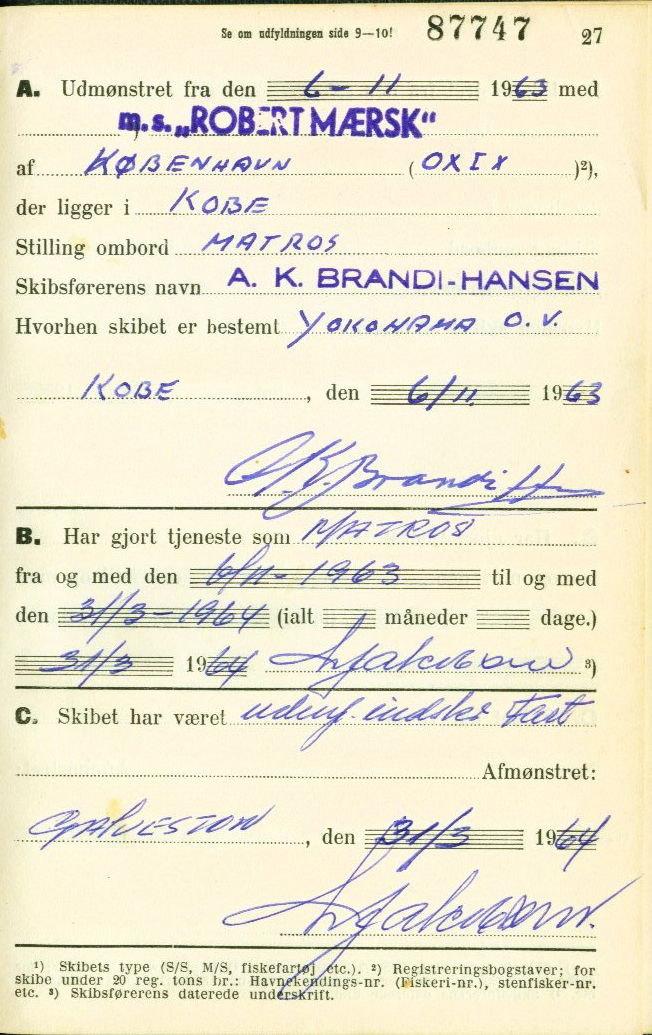 Se om udfyldningen side 9—10! 87747 27
A. Udmønstret fra den 6-11 1963 med
m.s. „ROBERT MÆRSK“
af KØBENHAVN (OXIX )²),
der ligger i KOBE
Stilling ombord MATROS
Skibsførerens navn A. K. BRANDI-HANSEN
Hvorhen skibet er bestemt YOKOHAMA O.V.
KOBE, den 6/11 1963
B. Har gjort tjeneste som MATROS
fra og med den 6/11-1963 til og med
den 31/3-1964 (ialt måneder dage.)
31/3 1964 ³)
C. Skibet har været Fart
Afmønstret:
GALVESTON, den 31/3 1964
¹) Skibets type (S/S, M/S, fiskefartøj etc.). ²) Registreringsbogstaver; for
skibe under 20 reg. tons br.: Havnekendings-nr. (Fiskeri-nr.), stenfisker-nr.
etc. ³) Skibsførerens daterede underskrift.